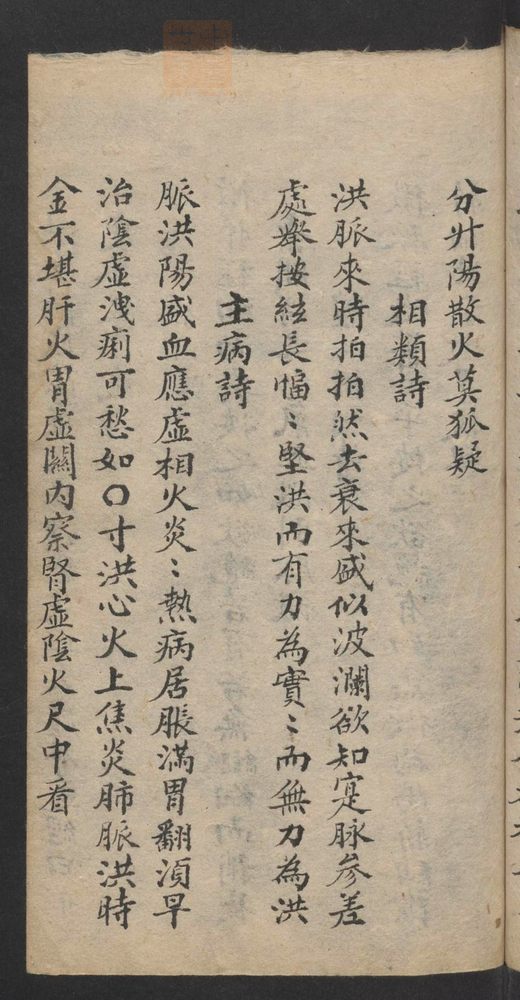 分升陽散火莫狐疑
相類詩
洪脈來時拍拍然去衰來盛似波瀾欲知寔脉參差
處舉按絃長愊〻堅洪而有力為實〻而無力為洪
主病詩
脈洪陽盛血應虛相火炎〻熱病居脹滿胃翻湏早
治陰虛洩痢可愁如〇寸洪心火上焦炎肺脈洪時
金不堪肝火胃虛關內察腎虛陰火尺中看